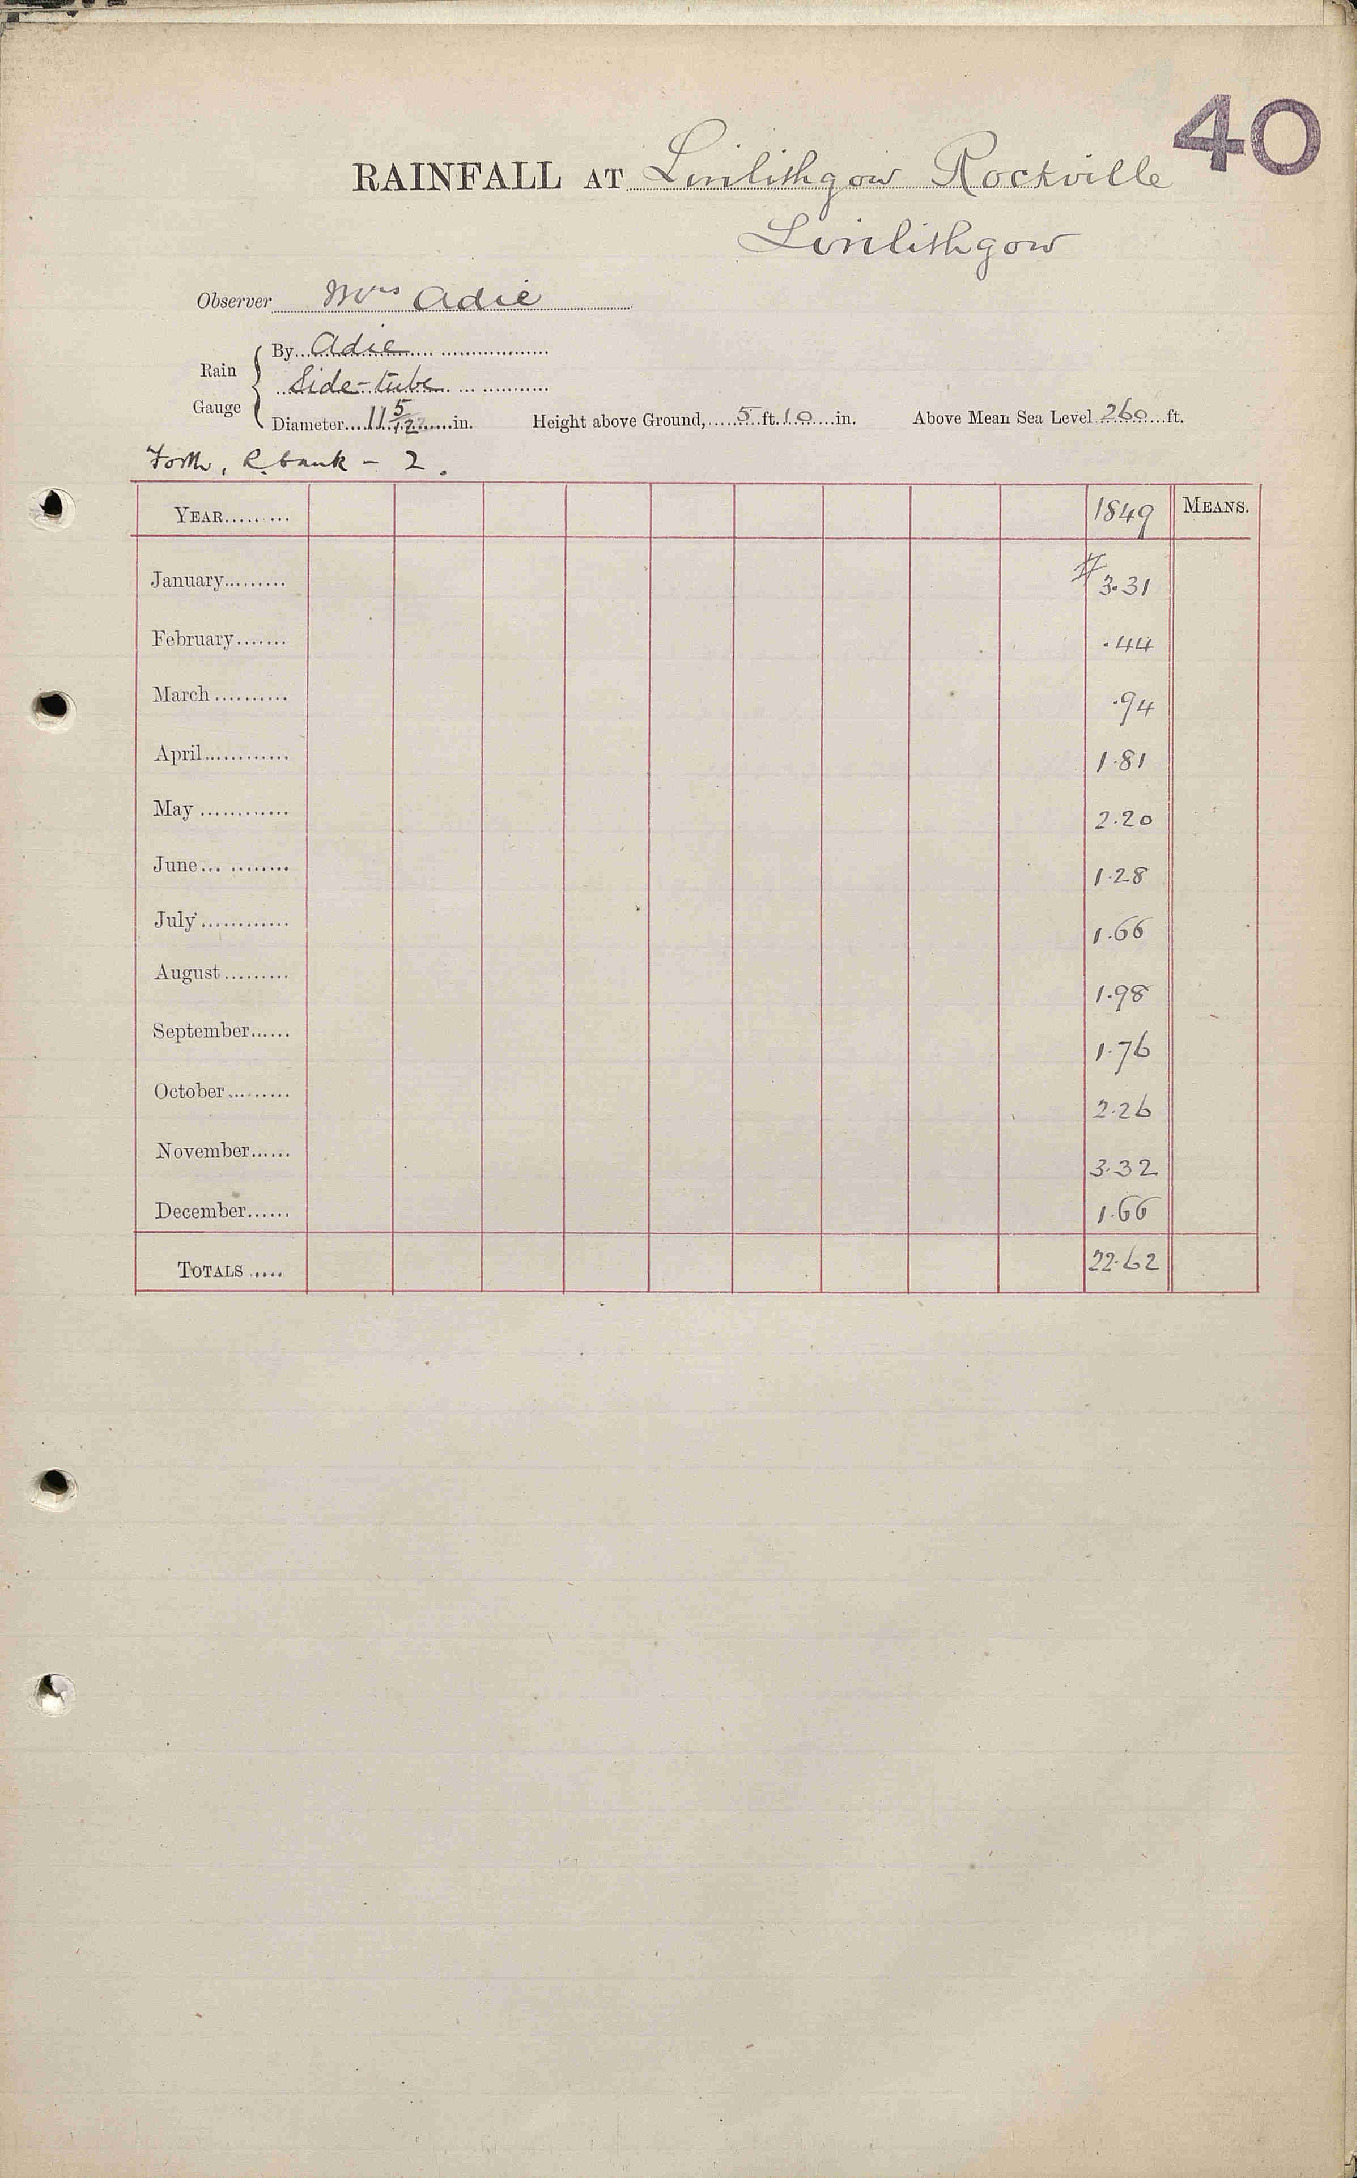 40
RAINFALL AT Linlithgow Rockville
Linlithgow
Observer Mrs Adie
Rain Gauge
By Adie
Side-tube
Diameter 11 5/12 in. Height above Ground, 5 ft. 10 in. Above Mean Sea Level 260 ft.
Forth, R. bank - 2.
YEAR 1849 MEANS.
January # 3.31
February .44
March .94
April 1.81
May 2.20
June 1.28
July 1.66
August 1.98
September 1.76
October 2.26
November 3.32
December 1.66
TOTALS 22.62